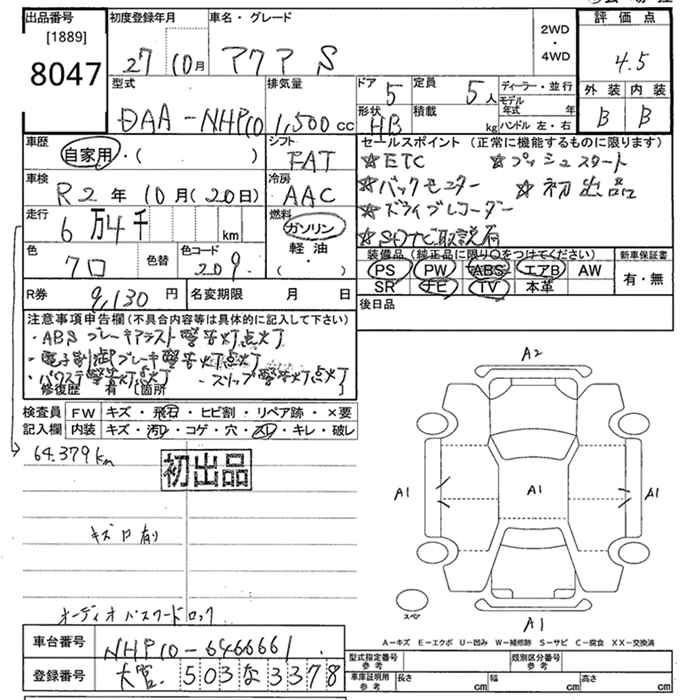 出品番号 初度登録年月 車名・グレード 評価点
[1889]
8047 27 10月 アクア S 2WD・4WD 4.5
型式 排気量 ドア 定員 ディーラー・並行 外装 内装
DAA-NHP10 1,500cc 5 5人 モデル年式 年 B B
形状 積載
HB kg ハンドル 左・右
車歴 シフト セールスポイント(正常に機能するものに限ります)
自家用・( ) FAT ☆ETC ☆プッシュスタート
車検 冷房 ☆バックモニター ☆初出品
R2年10月(20日) AAC ☆ドライブレコーダー
走行 燃料 ☆SDナビ取説有
6万4千 km ガソリン・軽油・( )
色 色替 色コード 装備品(純正品に限り○をつけてください) 新車保証書
クロ 209 PS PW ABS エアB AW 有・無
SR ナビ TV 本革
R券 9,130円 名変期限 月 日 後日品
注意事項申告欄(不具合内容等は具体的に記入して下さい)
・ABS ブレーキアシスト警告灯点灯
・電子制御ブレーキ警告灯点灯
・パワステ警告灯点灯 ・スリップ警告灯点灯
修復歴 有 [箇所
検査員 FW キズ・飛石・ヒビ割・リペア跡・×要
記入欄 内装 キズ・汚れ・コゲ・穴・スレ・キレ・破レ
64,379km
初出品
キズ凹有り
オーディオパスワードロック
A2
A1 A1 A1
スペア
A1
A-キズ E-エクボ U-凹み W-補修跡 S-サビ C-腐食 XX-交換済
車台番号 NHP10-6466661. 型式指定番号 参考 類別区分番号 参考
登録番号 大宮 503 な 3378 車庫証明用 参考 長さ cm 幅 cm 高さ cm